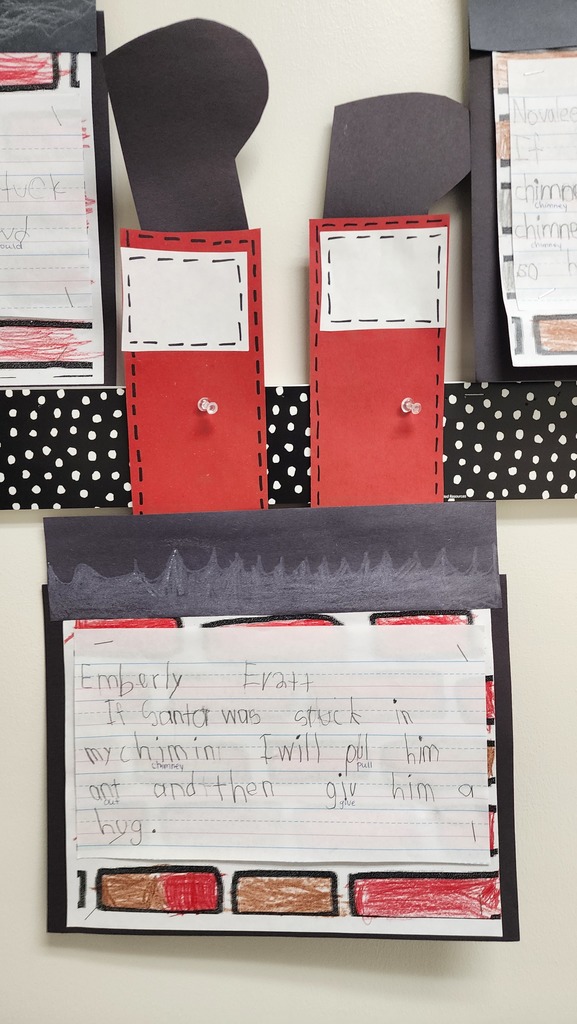 Novalee
If
chimne
chimney
chimne
chimney
so h
stuck
ould
Emberly Eratt
If Santa was stuck in
my chimini I will pul him
chimney pull
ant and then giv him a
out give
hug.